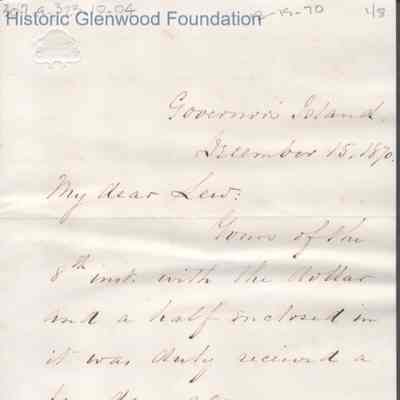 Historic Glenwood Foundation
1/8
Governor's Island
December 15, 1870.
My dear Lew:
Yours of the
8th inst. with the dollar
and a half enclosed in
it was duly received a